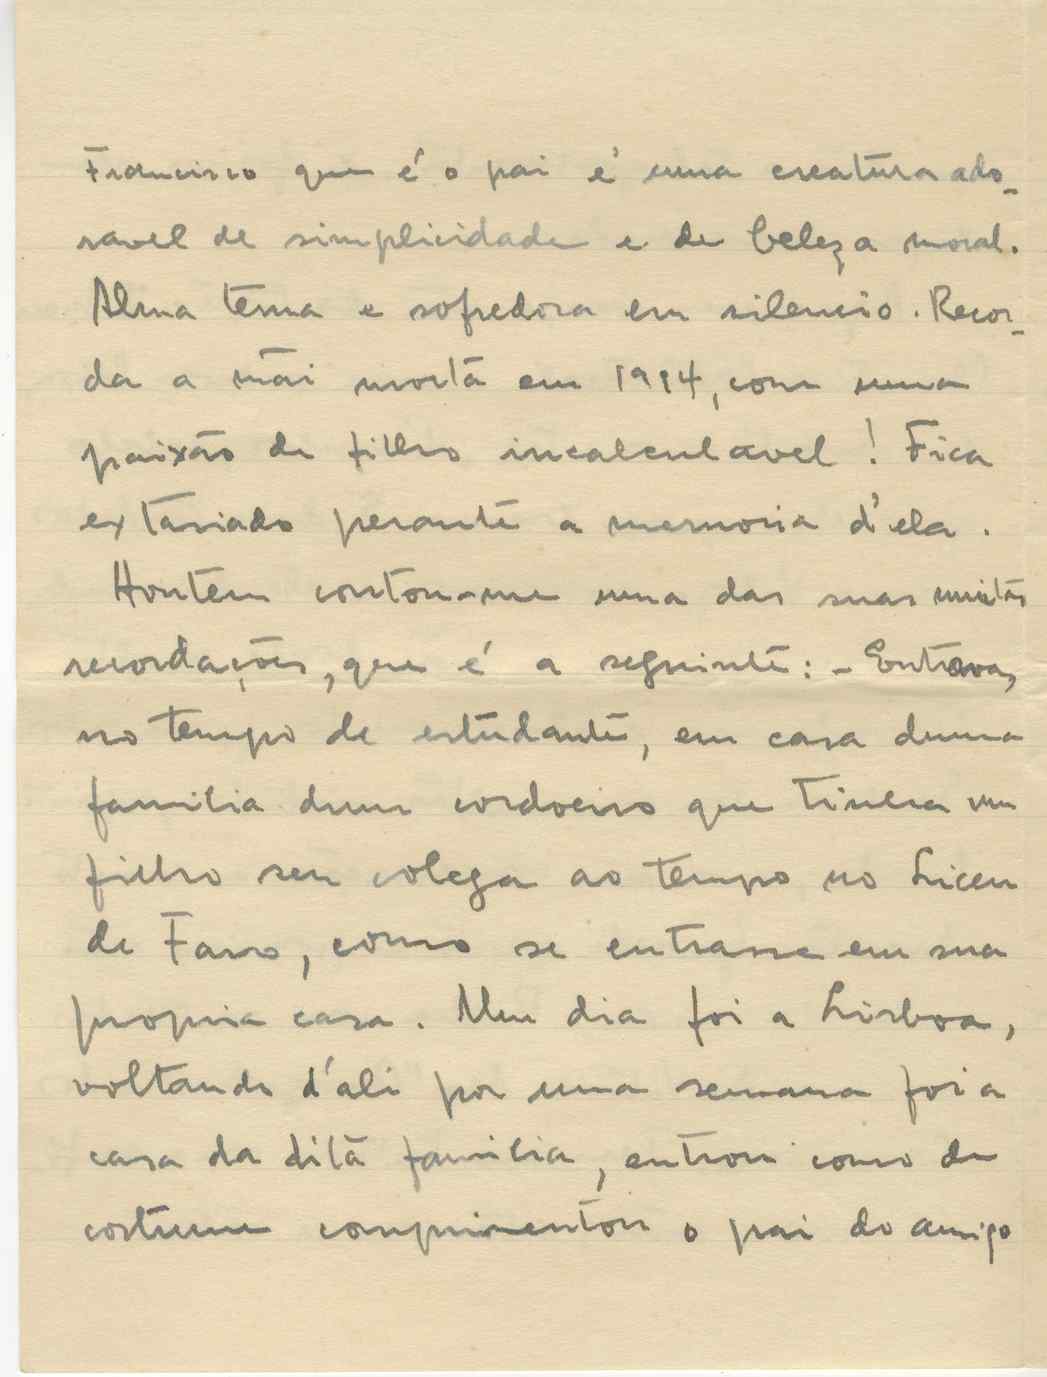 Francisco que é o pai é uma creatura ado-
ravel de simplicidade e de beleza moral.
Alma terna e sofredora em silencio. Recor-
da a mãi morta em 1914, com uma
paixão de filho incalculavel! Fica
extasiado perante a memoria d'ela.
Hontem contou-me uma das suas muitas
recordações, que é a seguinte: - Entrava,
no tempo de estudante, em casa duma
familia dum cordoeiro que tinha um
filho seu colega ao tempo no Liceu
de Faro, como se entrasse em sua
propria casa. Um dia foi a Lisboa,
voltando d'ali por uma semana foi a
casa da dita familia, entrou como de
costume comprimentou o pai do amigo